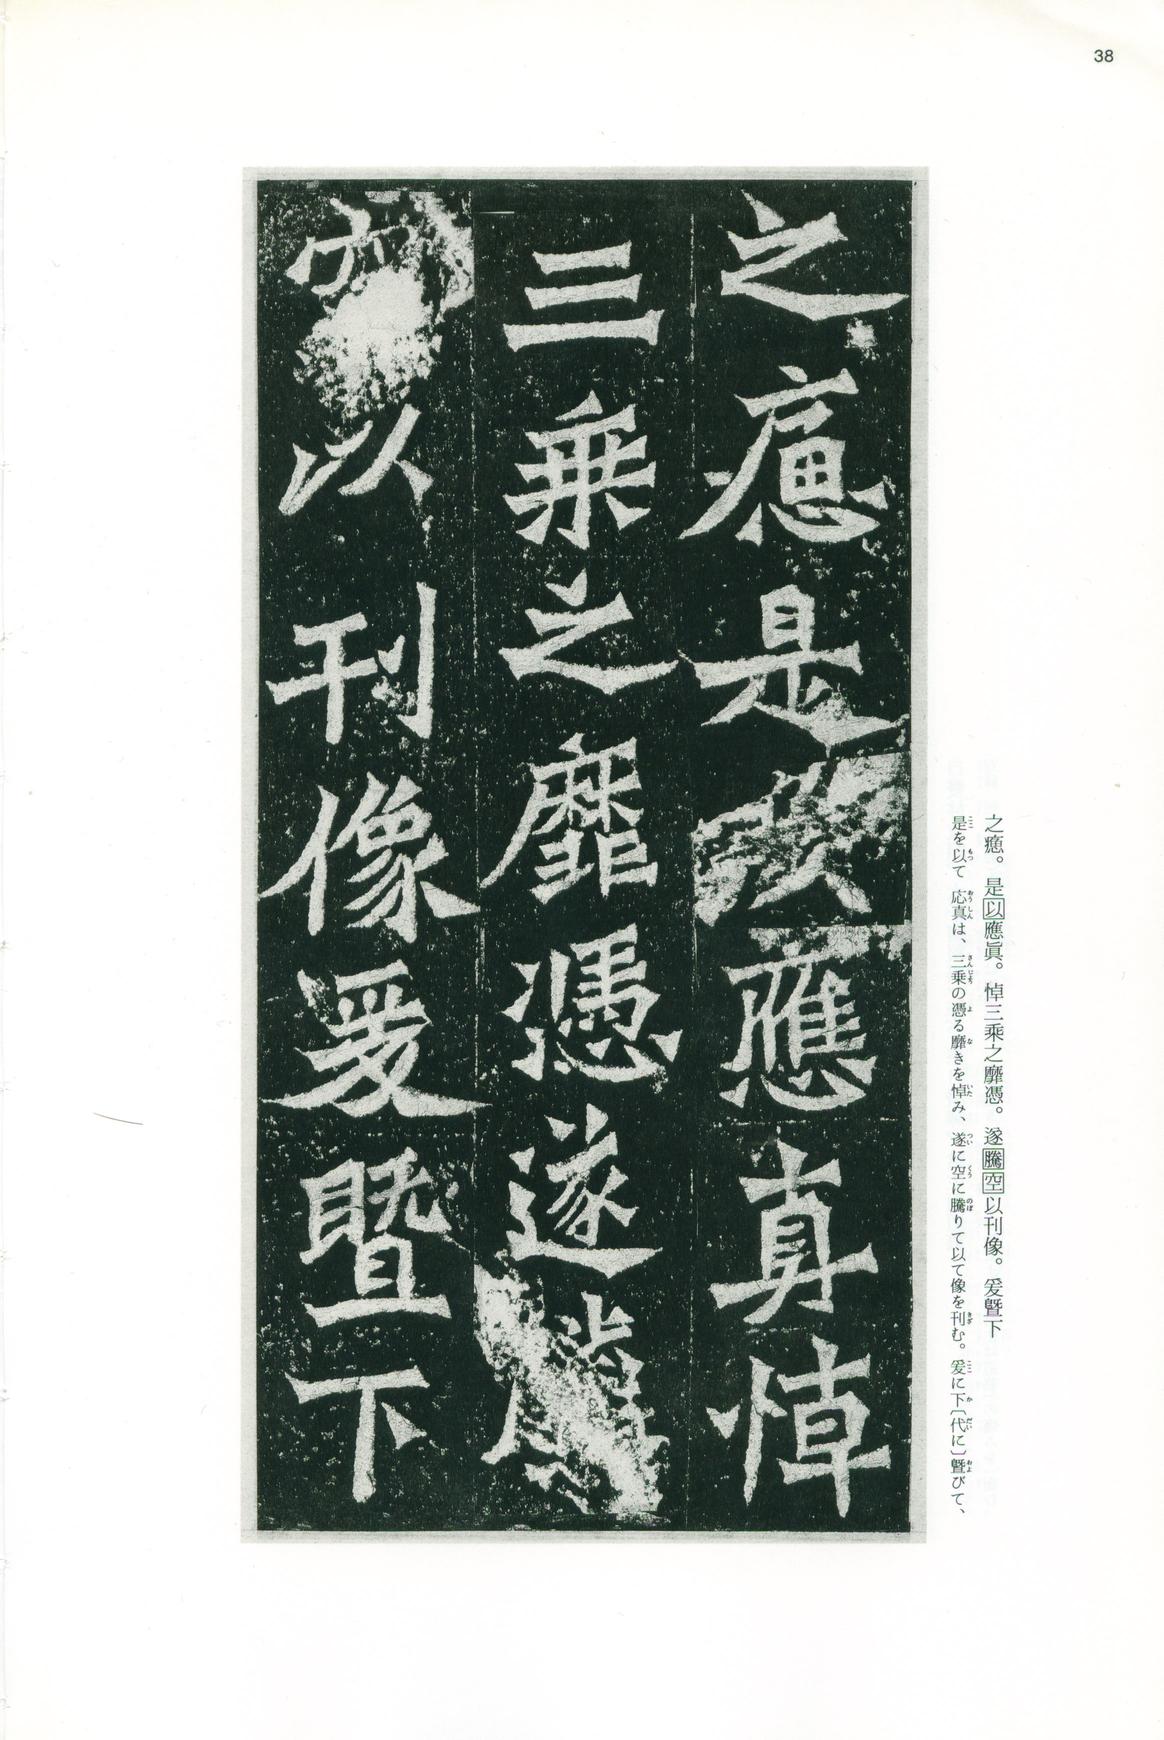 38
之癒是以應真悼
三乘之靡憑遂騰
空以刊像爰曁下
之癒。是以應眞。悼三乘之靡憑。遂騰空以刊像。爰曁下
是を以て応真は、三乗の憑る靡きを悼み、遂に空に騰りて以て像を刊む。爰に下〔代に〕曁びて、